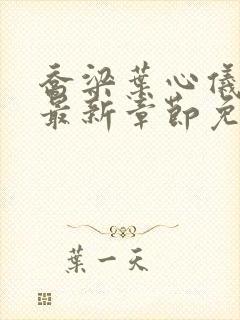 乔梁葉心儀
最新章節免
葉一天